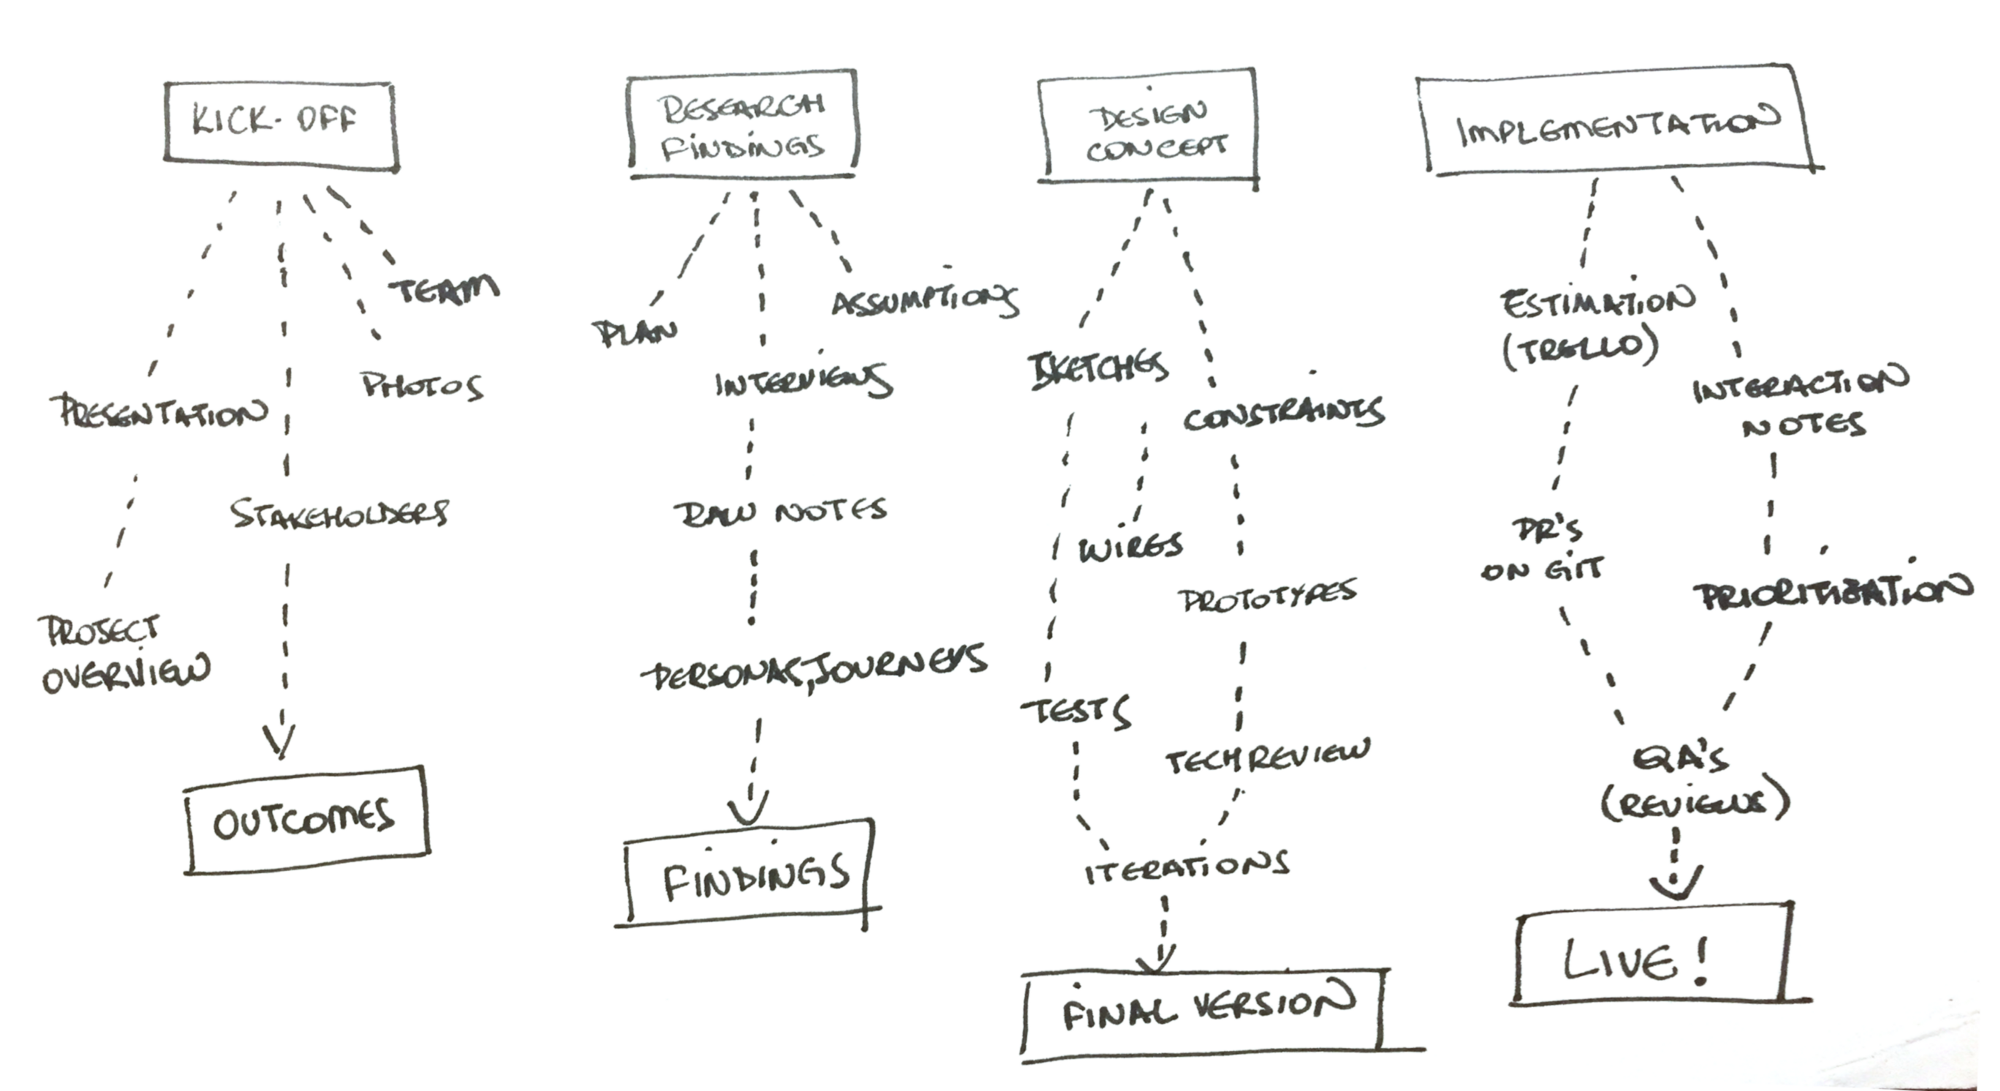 KICK-OFF
TEAM
PHOTOS
PRESENTATION
STAKEHOLDERS
PROJECT
OVERVIEW
OUTCOMES
RESEARCH
FINDINGS
PLAN
ASSUMPTIONS
INTERVIEWS
RAW NOTES
PERSONAS, JOURNEYS
FINDINGS
DESIGN
CONCEPT
SKETCHES
CONSTRAINTS
WIRES
PROTOTYPES
TESTS
TECH REVIEW
ITERATIONS
FINAL VERSION
IMPLEMENTATION
ESTIMATION
(TRELLO)
INTERACTION
NOTES
PR'S
ON GIT
PRIORITIZATION
QA'S
(REVIEWS)
LIVE!